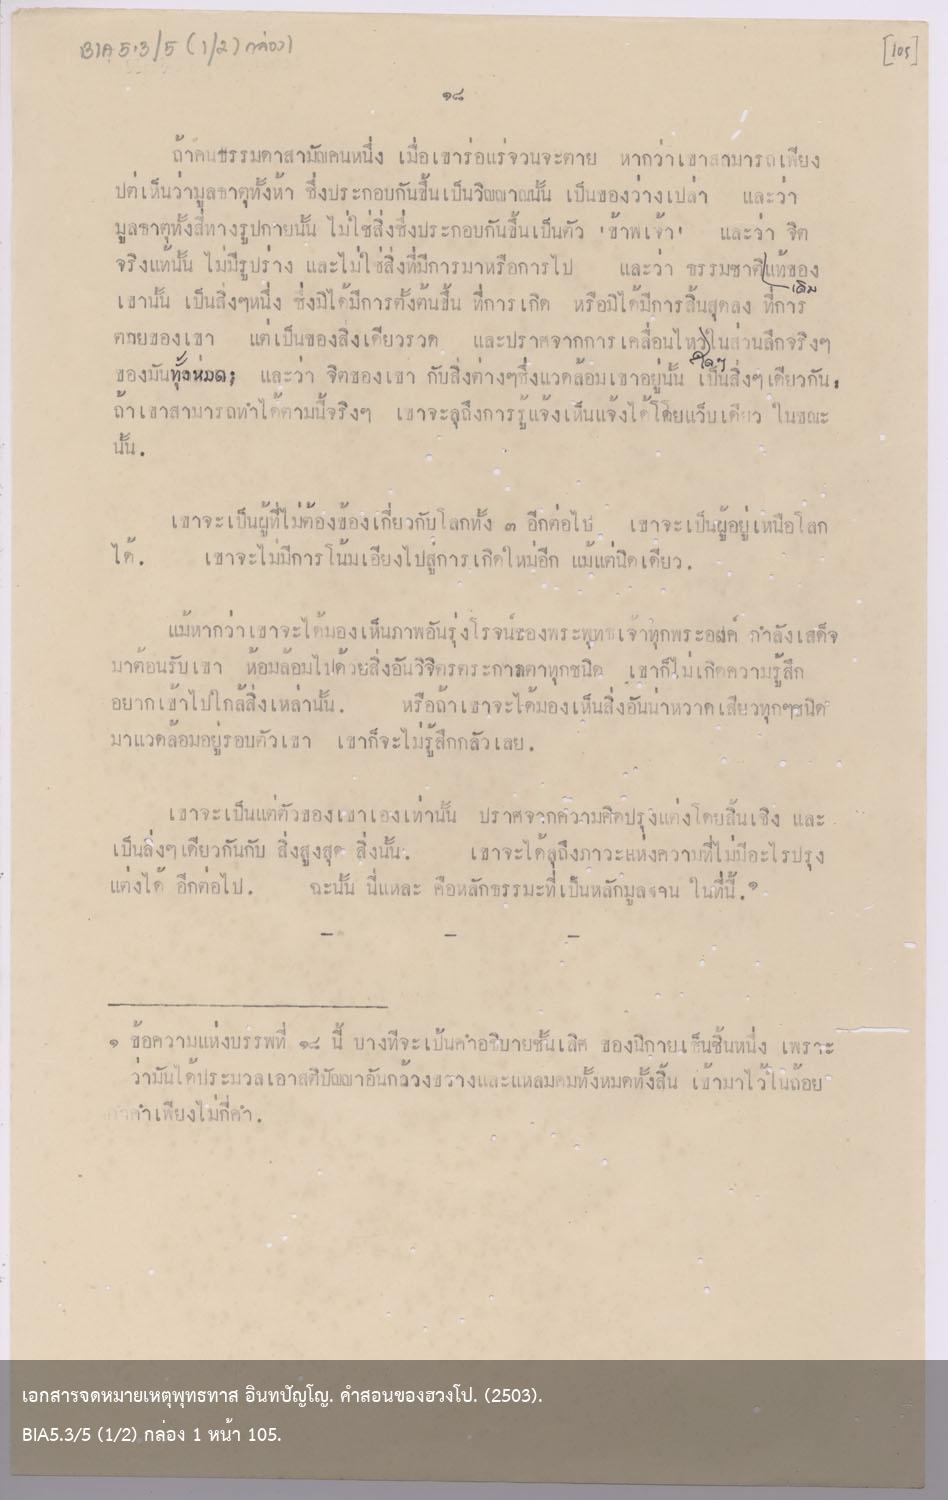 BIA 5.3/5 (1/2) กล่อง 1
[105]
๑๘
ถ้าคนธรรมดาสามัญคนหนึ่ง เมื่อเขาร่อแร่จวนจะตาย หากว่าเขาสามารถเพียง
แต่เห็นว่ามูลธาตุทั้งห้า ซึ่งประกอบกันขึ้นเป็นวิญญาณนั้น เป็นของว่างเปล่า และว่า
มูลธาตุทั้งสี่ทางรูปกายนั้น ไม่ใช่สิ่งซึ่งประกอบกันขึ้นเป็นตัว 'ข้าพเจ้า' และว่า จิต
จริงแท้นั้น ไม่มีรูปร่าง และไม่ใช่สิ่งที่มีการมาหรือการไป และว่า ธรรมชาติเดิมแท้ของ
เขานั้น เป็นสิ่งๆหนึ่ง ซึ่งมิได้มีการตั้งต้นขึ้น ที่การเกิด หรือมิได้มีการสิ้นสุดลง ที่การ
ตายของเขา แต่เป็นของสิ่งเดียวรวด และปราศจากการเคลื่อนไหวใดๆในส่วนลึกจริงๆ
ของมันทั้งหมด; และว่า จิตของเขา กับสิ่งต่างๆซึ่งแวดล้อมเขาอยู่นั้น เป็นสิ่งๆเดียวกัน,
ถ้าเขาสามารถทำได้ตามนี้จริงๆ เขาจะลุถึงการรู้แจ้งเห็นแจ้งได้โดยแว็บเดียว ในขณะ
นั้น.
เขาจะเป็นผู้ที่ไม่ต้องข้องเกี่ยวกับโลกทั้ง ๓ อีกต่อไป เขาจะเป็นผู้อยู่เหนือโลก
ได้. เขาจะไม่มีการโน้มเอียงไปสู่การเกิดใหม่อีก แม้แต่นิดเดียว.
แม้หากว่าเขาจะได้มองเห็นภาพอันรุ่งโรจน์ของพระพุทธเจ้าทุกพระองค์ กำลังเสด็จ
มาต้อนรับเขา ห้อมล้อมไปด้วยสิ่งอันวิจิตรตระการตาทุกชนิด เขาก็ไม่เกิดความรู้สึก
อยากเข้าไปใกล้สิ่งเหล่านั้น. หรือถ้าเขาจะได้มองเห็นสิ่งอันน่าหวาดเสียวทุกๆชนิด
มาแวดล้อมอยู่รอบตัวเขา เขาก็จะไม่รู้สึกกลัวเลย.
เขาจะเป็นแต่ตัวของเขาเองเท่านั้น ปราศจากความคิดปรุงแต่งโดยสิ้นเชิง และ
เป็นสิ่งๆเดียวกันกับ สิ่งสูงสุด สิ่งนั้น. เขาจะได้ลุถึงภาวะแห่งความที่ไม่มีอะไรปรุง
แต่งได้ อีกต่อไป. ฉะนั้น นี่แหละ คือหลักธรรมะที่เป็นหลักมูลฐาน ในที่นี้.๑
- - -
๑ ข้อความแห่งบรรพที่ ๑๘ นี้ บางทีจะเป็นคำอธิบายชั้นเลิศ ของนิกายเซ็นชิ้นหนึ่ง เพราะ
ว่ามันได้ประมวลเอาสติปัญญาอันกว้างขวางและแหลมคมทั้งหมดทั้งสิ้น เข้ามาไว้ในถ้อย
คำเพียงไม่กี่คำ.
เอกสารจดหมายเหตุพุทธทาส อินทปัญโญ. คำสอนของฮวงโป. (2503).
BIA5.3/5 (1/2) กล่อง 1 หน้า 105.